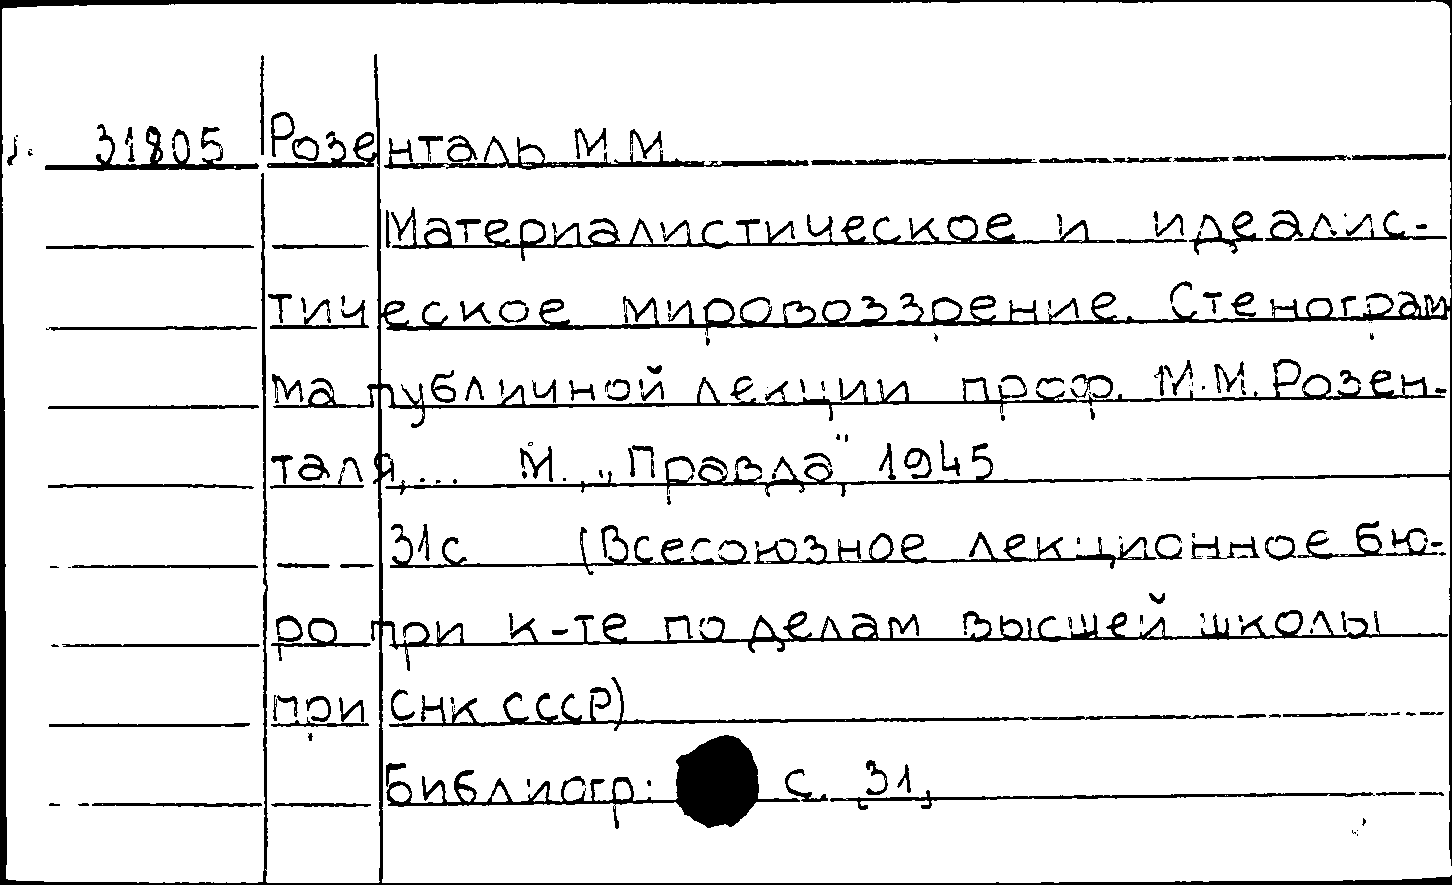 31805 Розенталь М.М.
Материалистическое и идеалис-
тическое мировоззрение. Стенограм
ма публичной лекции проф. М.М. Розен-
таля,... М., „Правда", 1945
31с (Всесоюзное лекционное бю-
ро при к-те по делам высшей школы
при СНК СССР)
Библиогр: с. [31]